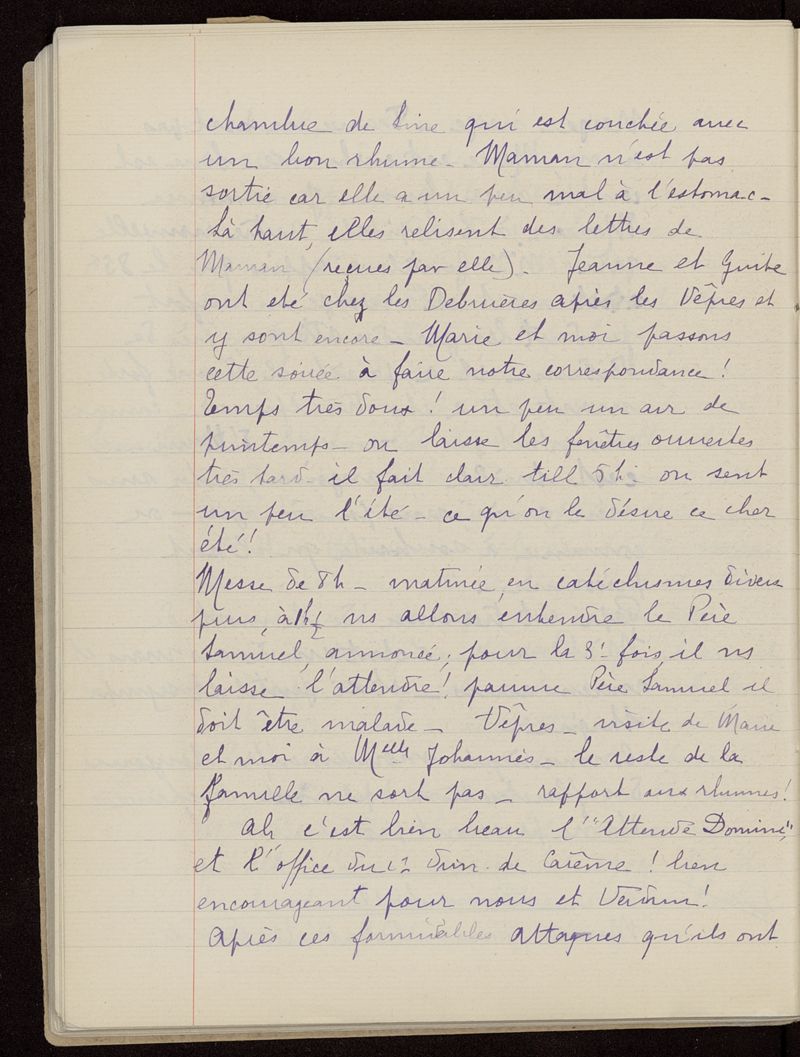 chambre de Line qui est couchée avec
un bon rhume - Maman n'est pas
sortie car elle a un peu mal à l'estomac -
Là haut, elles relisent des lettres de
Maman (reçues par elle). Jeanne et Guite
ont été chez les Debruères après les Vêpres et
y sont encore - Marie et moi passons
cette soirée à faire notre correspondance !
Temps très doux ! un peu un air de
printemps - on laisse les fenêtres ouvertes
très tard - il fait clair till 5h on sent
un peu l'été - ce qu'on le désire ce cher
été !
Messe de 8h - matinée en catéchismes divers
puis, à 1h½ ns allons entendre le Père
Samuel, annoncé, pour la 3e fois, il ns
laisse l'attendre ! pauvre Père Samuel il
doit être malade - Vêpres - visite de Marie
et moi à Melle Johannès - le reste de la
famille ne sort pas - rapport aux rhumes !
Ah c'est bien beau l'"Attende Domine",
et l'office du 1er dim. de Carême ! bien
encourageant pour nous et Verdun !
Après ces formidables attaques qu'ils ont